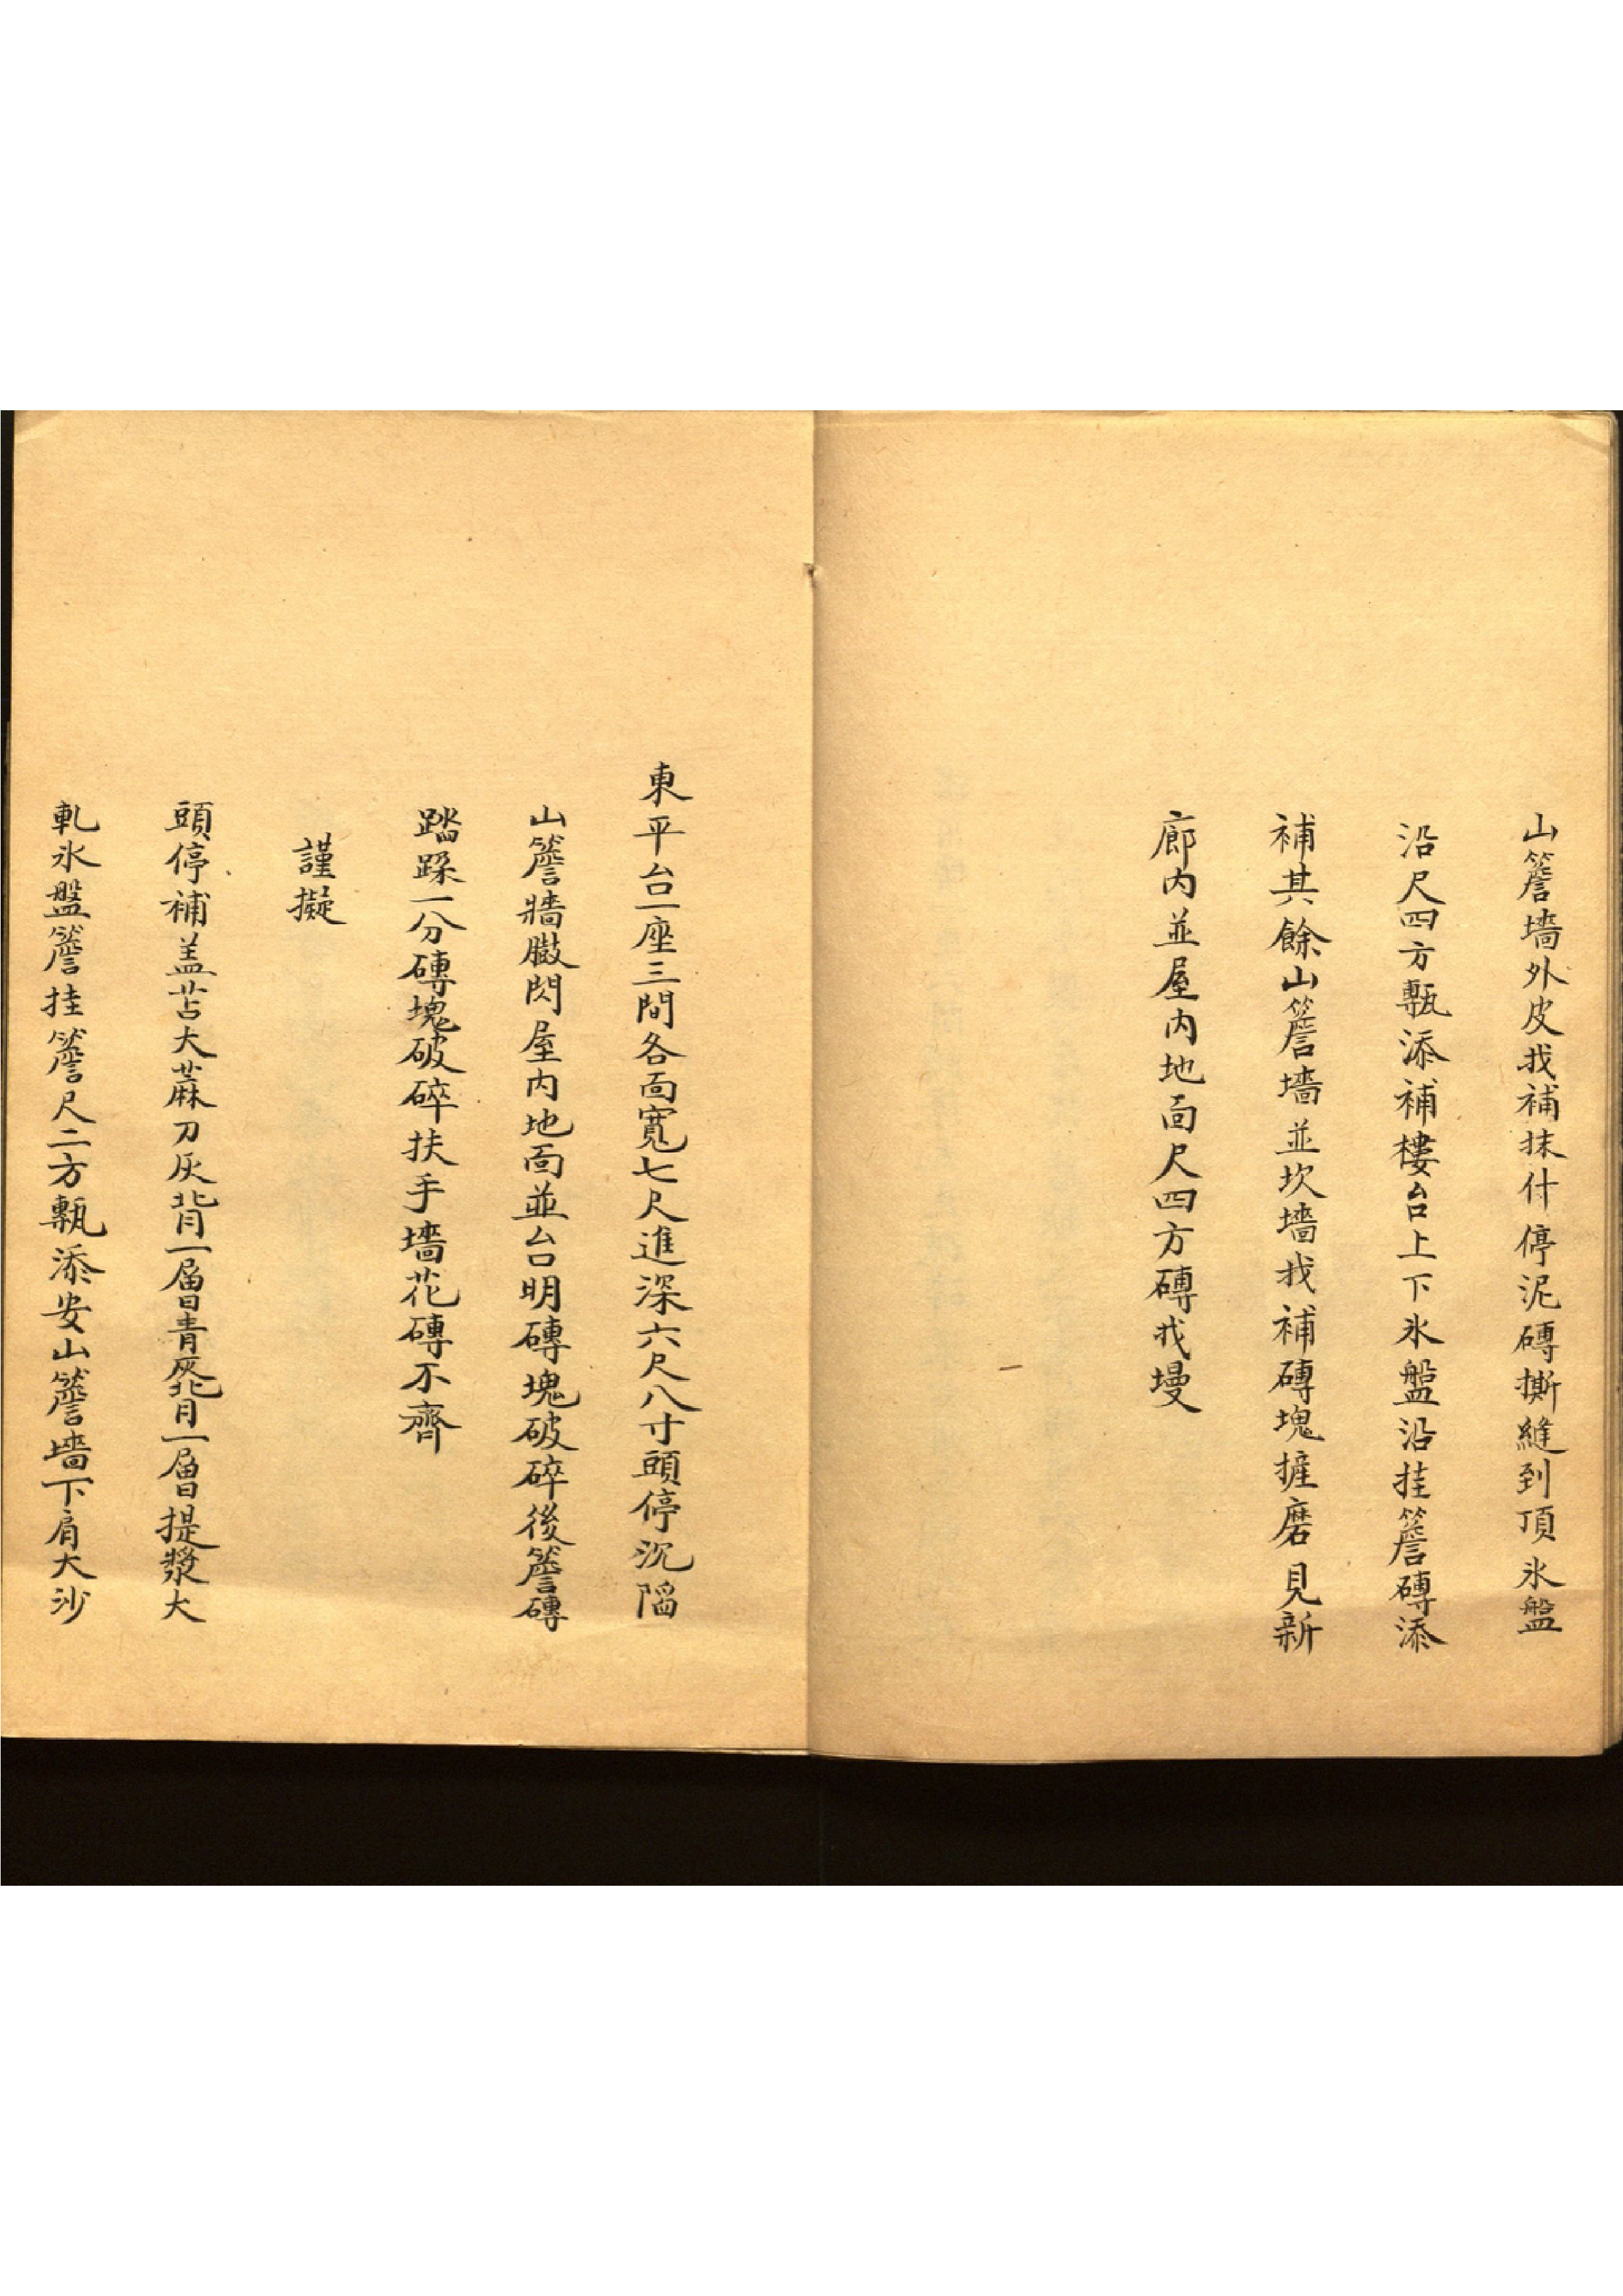 山簷墻外皮找補抹什停泥磚撕縫到頂氷盤
沿尺四方甎添補樓台上下氷盤沿挂簷磚添
補其餘山簷墻並坎墻找補磚塊摧磨見新
廊内並屋内地面尺四方磚找墁
東平台一座三間各面寬七尺進深六尺八寸頭停沉陷
山簷牆臌閃屋内地面並台明磚塊破碎後簷磚
踏跺一分磚塊破碎扶手墻花磚不齊
謹擬
頭停補盖苫大蔴刀灰背一層青灰背一層提漿大
軋氷盤簷挂簷尺二方甎添安山簷墻下肩大沙